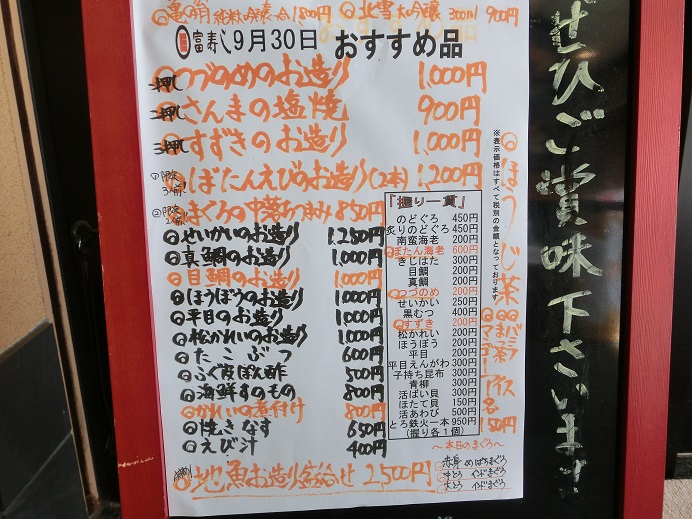 純米吟醸 一合 1800円 北雪 大吟醸 300ml 900円
富寿し 9月30日 おすすめ品
一押し つづのめのお造り 1,000円
二押し さんまの塩焼 900円
三押し すずきのお造り 1,000円
①限定3人前! ぼたんえびのお造り(2本) 1,200円
②限定 まぐろの中落ちつまみ 850円
せいかいのお造り 1,250円
真鯛のお造り 1,000円
目鯛のお造り 1,000円
ほうぼうのお造り 1,000円
平目のお造り 1,000円
松かれいのお造り 1,000円
たこぶつ 600円
ふぐ皮ぽん酢 500円
海鮮すのもの 800円
かれいの煮付け 800円
焼きなす 650円
えび汁 400円
地魚お造り盛合せ 2,500円
『握り一貫』
のどぐろ 450円
炙りのどぐろ 450円
南蛮海老 200円
ぼたん海老 600円
きじはた 300円
目鯛 200円
真鯛 200円
つづのめ 200円
せいかい 250円
黒むつ 400円
すずき 200円
松かれい 200円
ほうぼう 200円
平目 200円
平目えんがわ 300円
子持ち昆布 300円
青柳 300円
活ばい貝 300円
ほたて貝 150円
活あわび 500円
とろ鉄火一本 950円
(握り各1個)
～本日のまぐろ～
赤身 めばちまぐろ
中とろ インドまぐろ
大とろ インドまぐろ
※表示価格はすべて税別の金額となっております
ほうじ茶
アイス
各150円
ぜひご賞味下さいませ